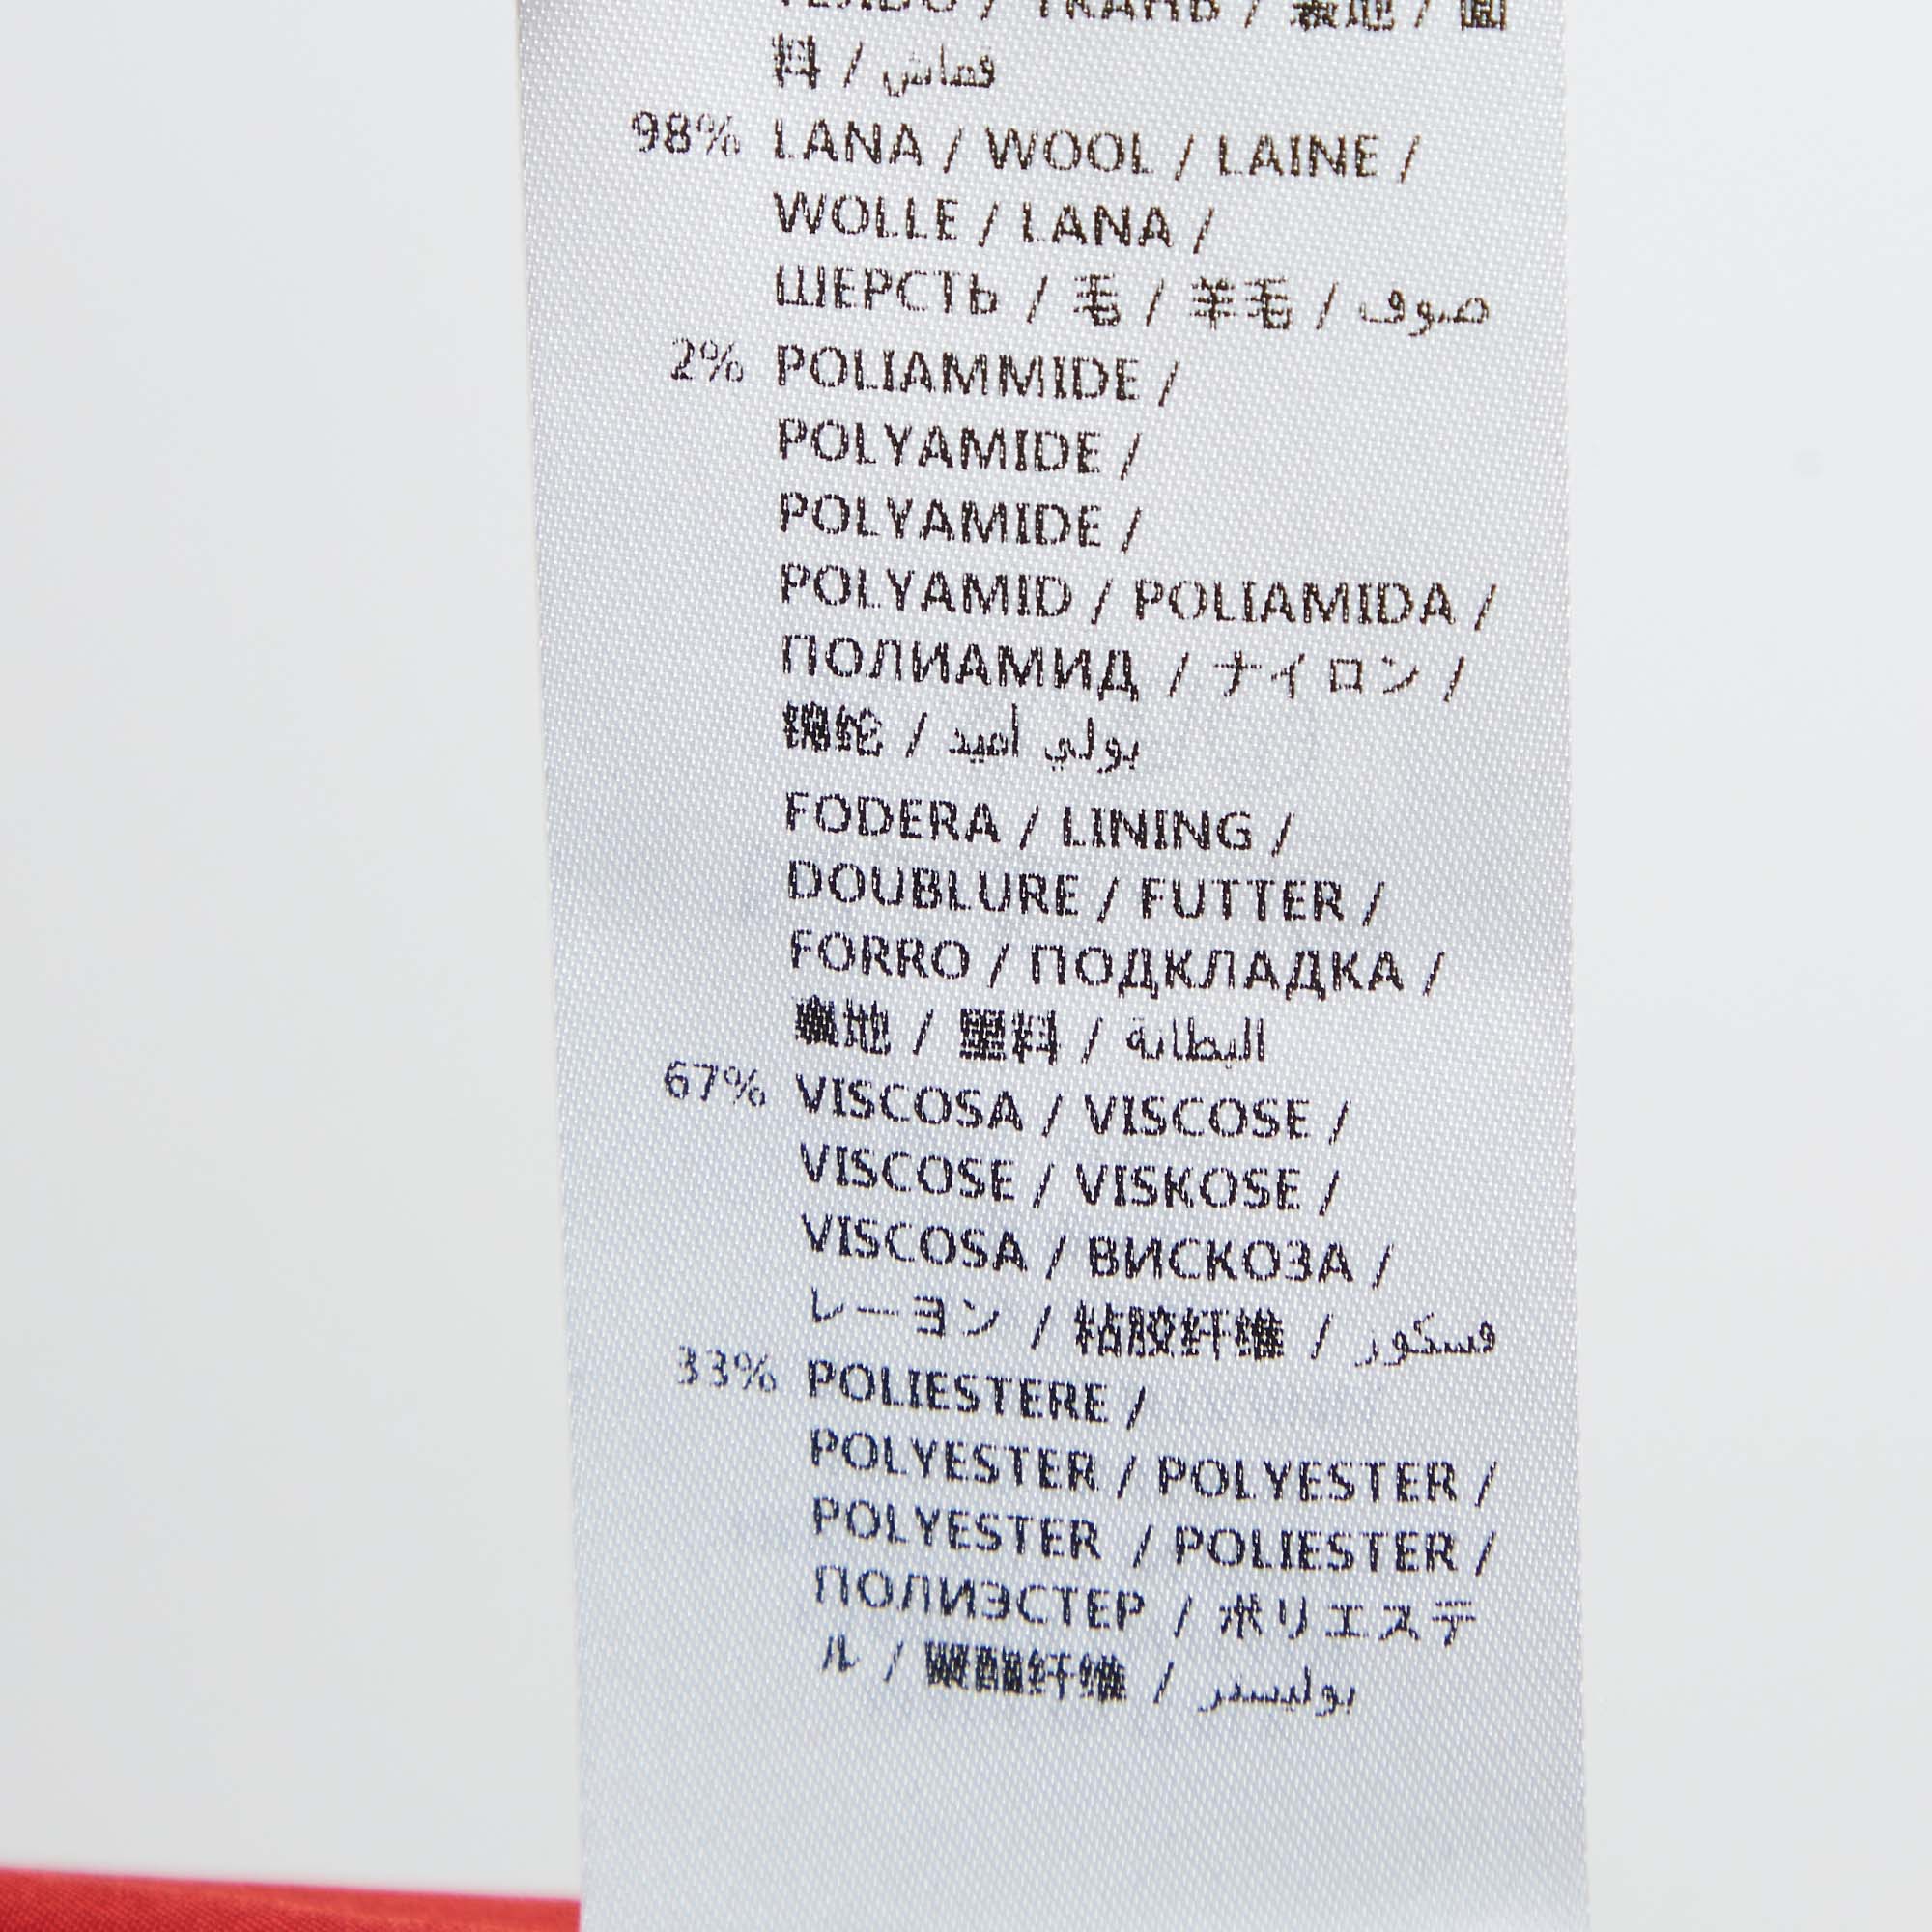 TEJIDO / ТКАНЬ / 表地 / 面
料 / قماش
98% LANA / WOOL / LAINE /
WOLLE / LANA /
ШЕРСТЬ / 毛 / 羊毛 / صوف
2% POLIAMMIDE /
POLYAMIDE /
POLYAMIDE /
POLYAMID / POLIAMIDA /
ПОЛИАМИД / ナイロン /
锦纶 / بولي أميد
FODERA / LINING /
DOUBLURE / FUTTER /
FORRO / ПОДКЛАДКА /
裏地 / 里料 / البطانة
67% VISCOSA / VISCOSE /
VISCOSE / VISKOSE /
VISCOSA / ВИСКОЗА /
レーヨン / 粘胶纤维 / فسكور
33% POLIESTERE /
POLYESTER / POLYESTER /
POLYESTER / POLIESTER /
ПОЛИЭСТЕР / ポリエステ
ル / 聚酯纤维 / بوليستر